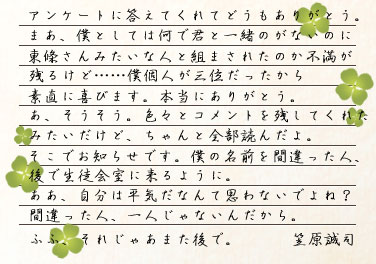 アンケートに答えてくれてどうもありがとう。
まあ、僕としては何で君と一緒のがないのに
東條さんみたいな人と組まされたのか不満が
残るけど……僕個人が三位だったから
素直に喜びます。本当にありがとう。
あ、そうそう。色々とコメントを残してくれた
みたいだけど、ちゃんと全部読んだよ。
そこでお知らせです。僕の名前を間違った人、
後で生徒会室に来るように。
ああ、自分は平気だなんて思わないでよね？
間違った人、一人じゃないんだから。
ふふ、それじゃあまた後で。 笠原誠司